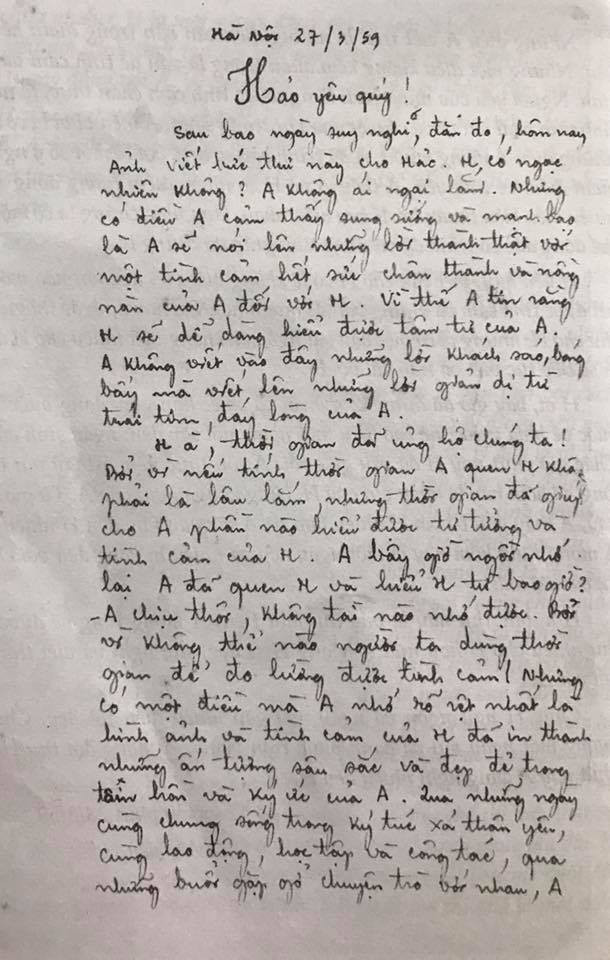 Hà Nội 27/3/59
Hảo yêu quý!
Sau bao ngày suy nghĩ, đắn đo, hôm nay
Anh viết bức thư này cho Hảo. H, có ngạc
nhiên không? A không ái ngại lắm. Nhưng
có điều A cảm thấy sung sướng và mạnh bạo
là A sẽ nói lên những lời thành thật với
một tình cảm hết sức chân thành và nồng
nàn của A đối với H. Vì thế A tin rằng
H sẽ dễ dàng hiểu được tâm tư của A.
A không viết vào đây những lời khách sáo, bóng
bẩy mà viết lên những lời giản dị từ
trái tim, đáy lòng của A.
H à, thời gian đã ủng hộ chúng ta!
Bởi vì nếu tính thời gian A quen H không
phải là lâu lắm, nhưng thời gian đã giúp
cho A phần nào hiểu được tư tưởng và
tình cảm của H. A bây giờ ngồi nhớ
lại A đã quen H và hiểu H từ bao giờ?
- A chịu thôi, không tài nào nhớ được. Bởi
vì không thể nào người ta dùng thời
gian để đo lường được tình cảm! Nhưng
có một điều mà A nhớ rõ rệt nhất là
hình ảnh và tình cảm của H đã in thành
những ấn tượng sâu sắc và đẹp đẽ trong
tâm hồn và ký ức của A. Qua những ngày
cùng chung sống trong ký túc xá thân yêu,
cùng lao động, học tập và công tác, qua
những buổi gặp gỡ chuyện trò với nhau, A